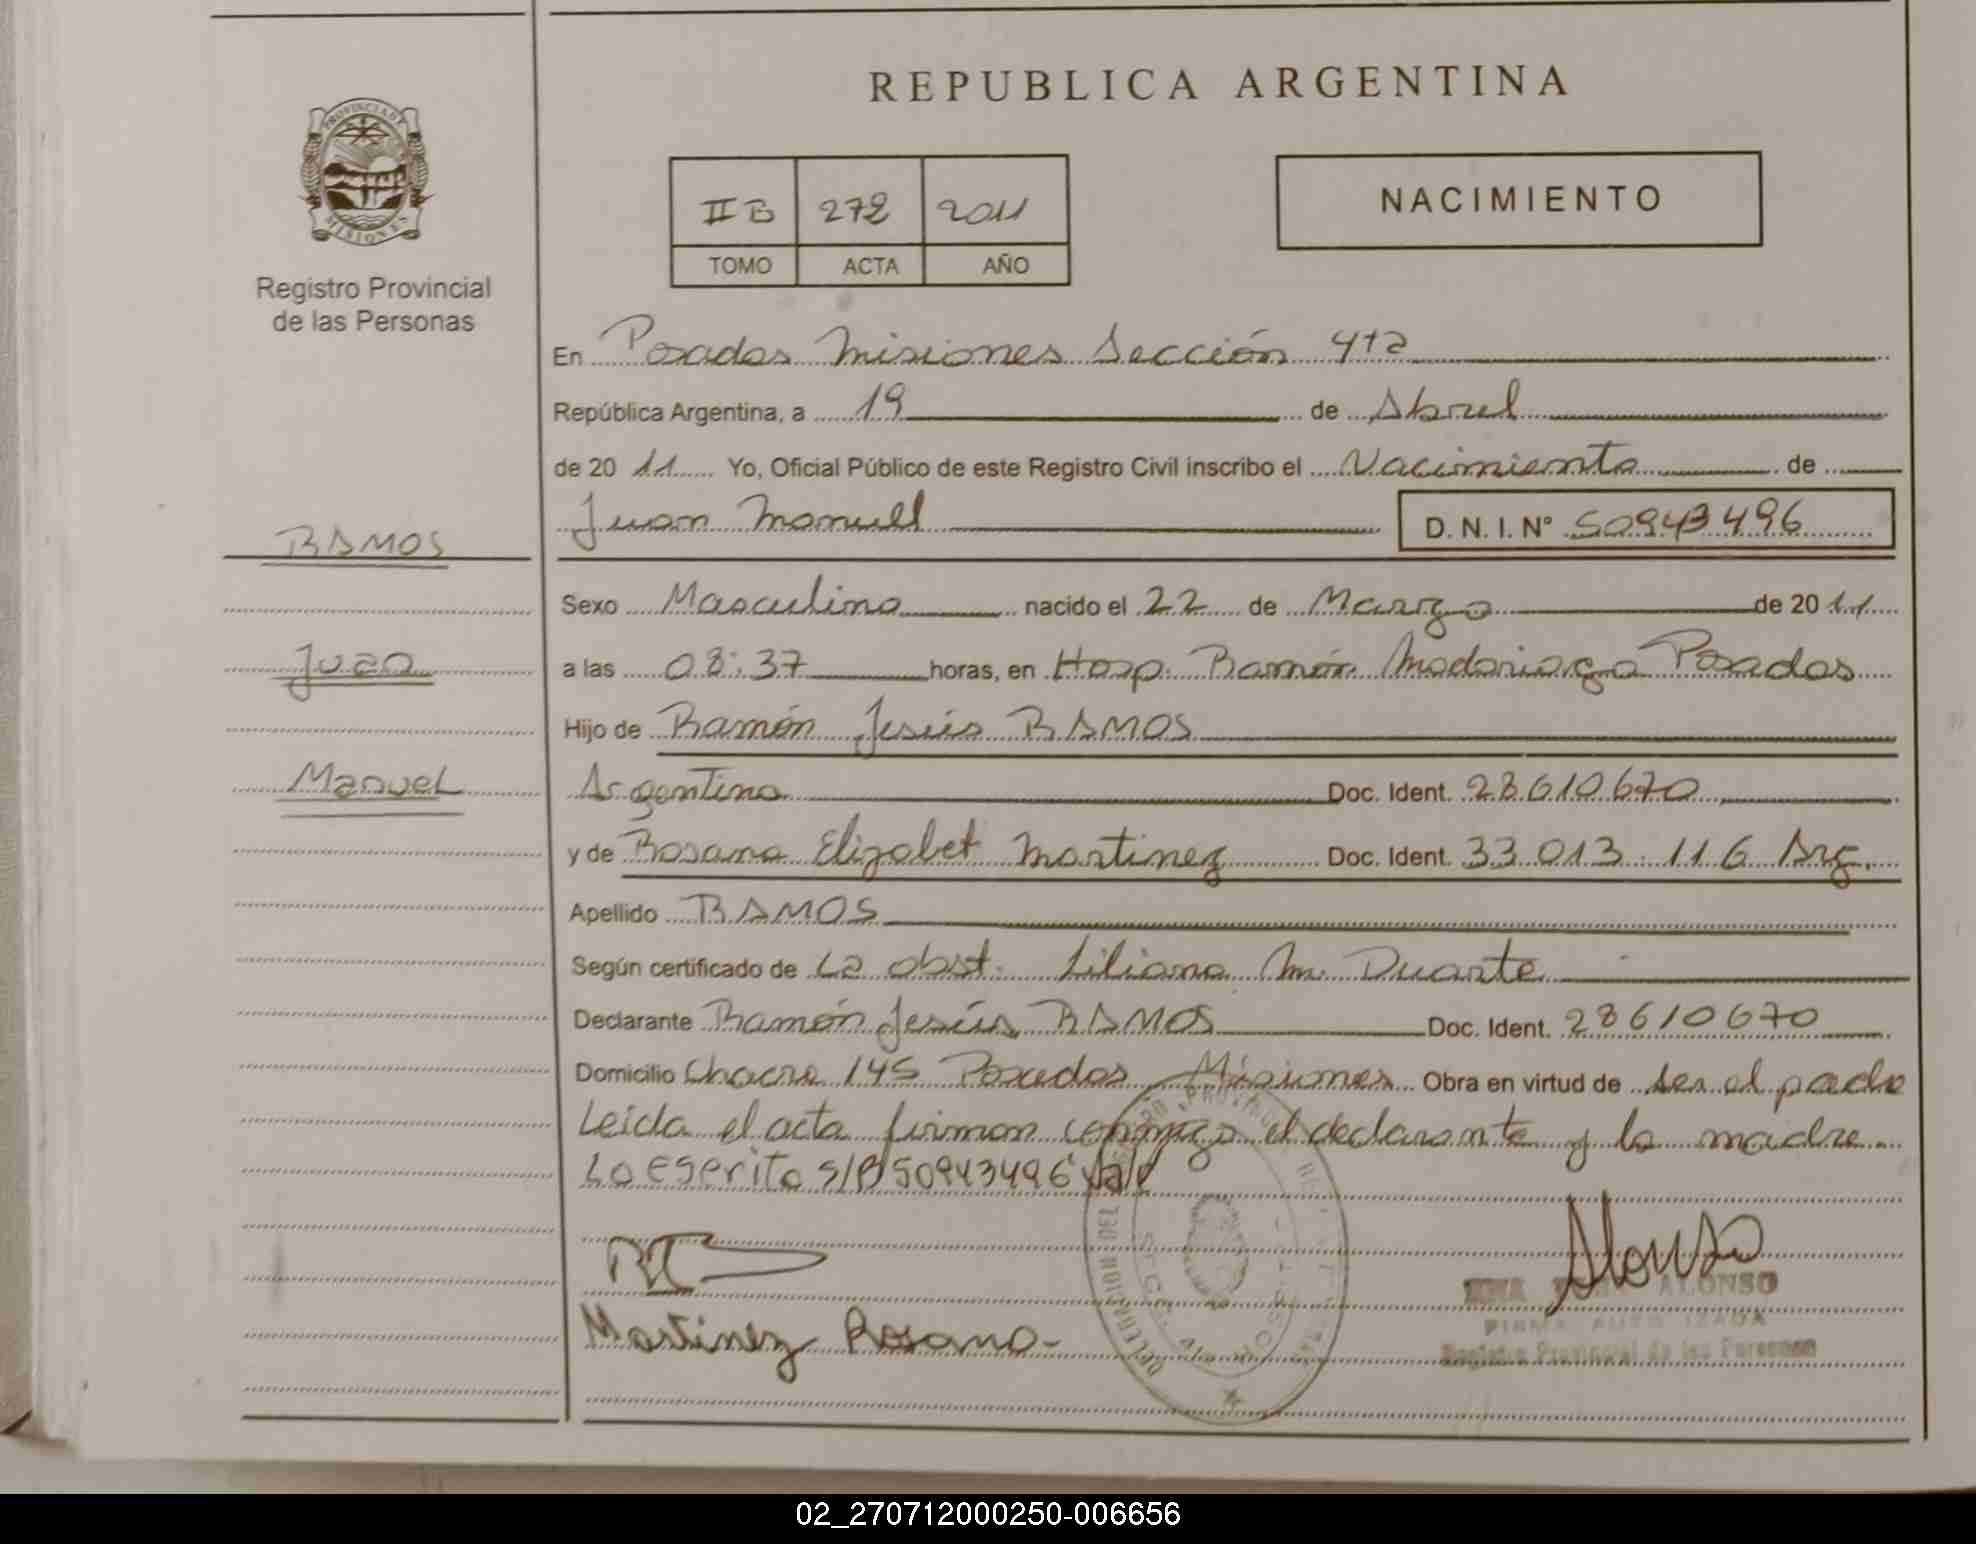 REPUBLICA ARGENTINA
PROVINCIA DE MISIONES
Registro Provincial
de las Personas
II B 272 2011
TOMO ACTA AÑO
NACIMIENTO
En Posadas Misiones Sección 4ta
República Argentina, a 19 de Abril
de 2011 Yo, Oficial Público de este Registro Civil inscribo el Nacimiento de
Juan Manuel D. N. I. N° 50943496
RAMOS
Juan
Manuel
Sexo Masculino nacido el 22 de Marzo de 2011
a las 08:37 horas, en Hosp. Ramón Madariaga Posadas
Hijo de Ramón Jesús RAMOS
Argentino Doc. Ident. 28610670
y de Rosana Elizabet Martinez Doc. Ident. 33.013.116 Arg.
Apellido RAMOS
Según certificado de La obst. Liliana M. Duarte
Declarante Ramón Jesús RAMOS Doc. Ident. 28610670
Domicilio Chacra 145 Posadas Misiones Obra en virtud de ser el padre
Leida el acta firman conmigo el declarante y la madre
Lo escrito S/B 50943496 Vale
Alonso
Martinez Rosana
ALONSO
Registro Provincial de las Personas
02_270712000250-006656